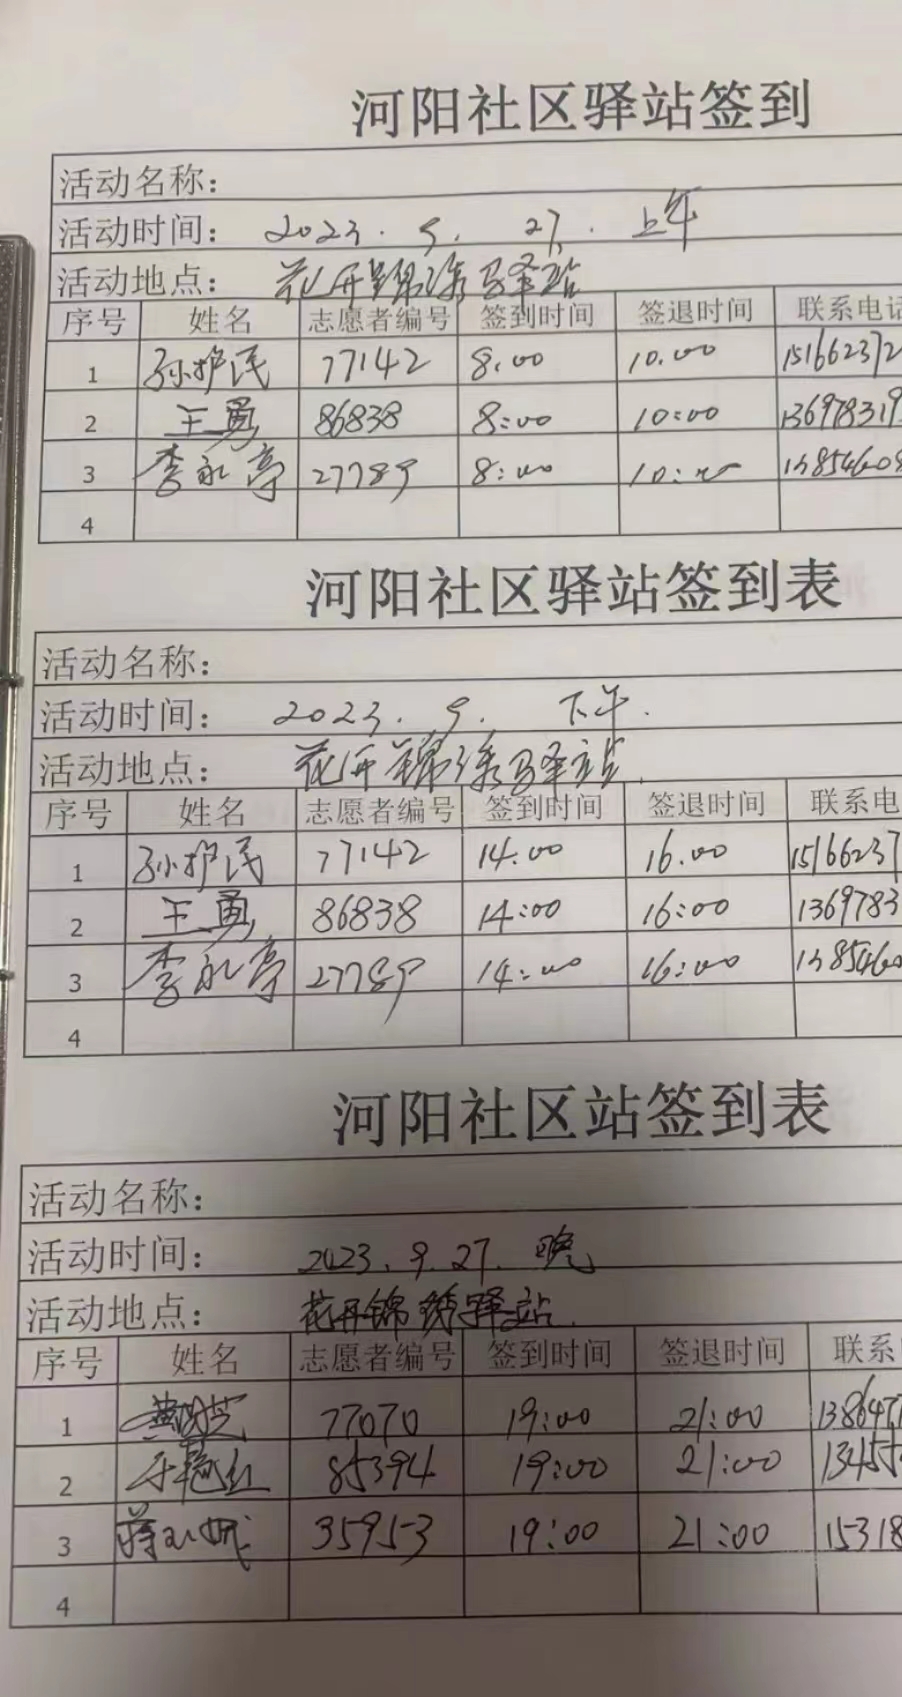 河阳社区驿站签到
活动名称：
活动时间： 2023. 9. 27. 上午
活动地点： 花开锦绣驿站
序号 姓名 志愿者编号 签到时间 签退时间 联系电话
1 孙护民 77142 8:00 10:00 151662372
2 王勇 86838 8:00 10:00 136978319
3 李永亭 27789 8:00 10:00 13854608
4
河阳社区驿站签到表
活动名称：
活动时间： 2023. 9. 下午.
活动地点： 花开锦绣驿站.
序号 姓名 志愿者编号 签到时间 签退时间 联系电
1 孙护民 77142 14:00 16:00 15166237
2 王勇 86838 14:00 16:00 1369783
3 李永亭 27789 14:00 16:00 1385460
4
河阳社区站签到表
活动名称：
活动时间： 2023. 9. 27. 晚
活动地点： 花开锦绣驿站.
序号 姓名 志愿者编号 签到时间 签退时间 联系
1 77070 19:00 21:00 138647
2 85394 19:00 21:00 13455
3 35953 19:00 21:00 15318
4